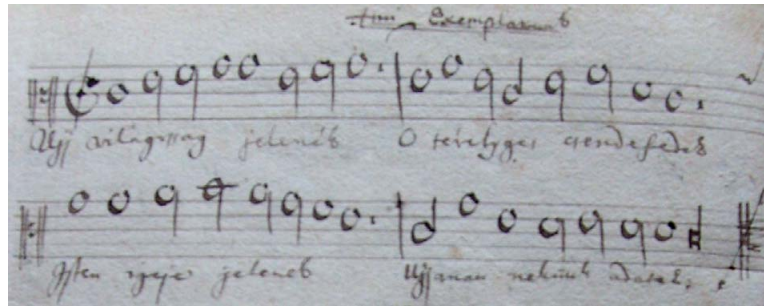 Exemplarunk
Ujj világossag jelenék O tévelyges csendesedek
Isten igeje jelenék Ujjonan nekünk adaték.